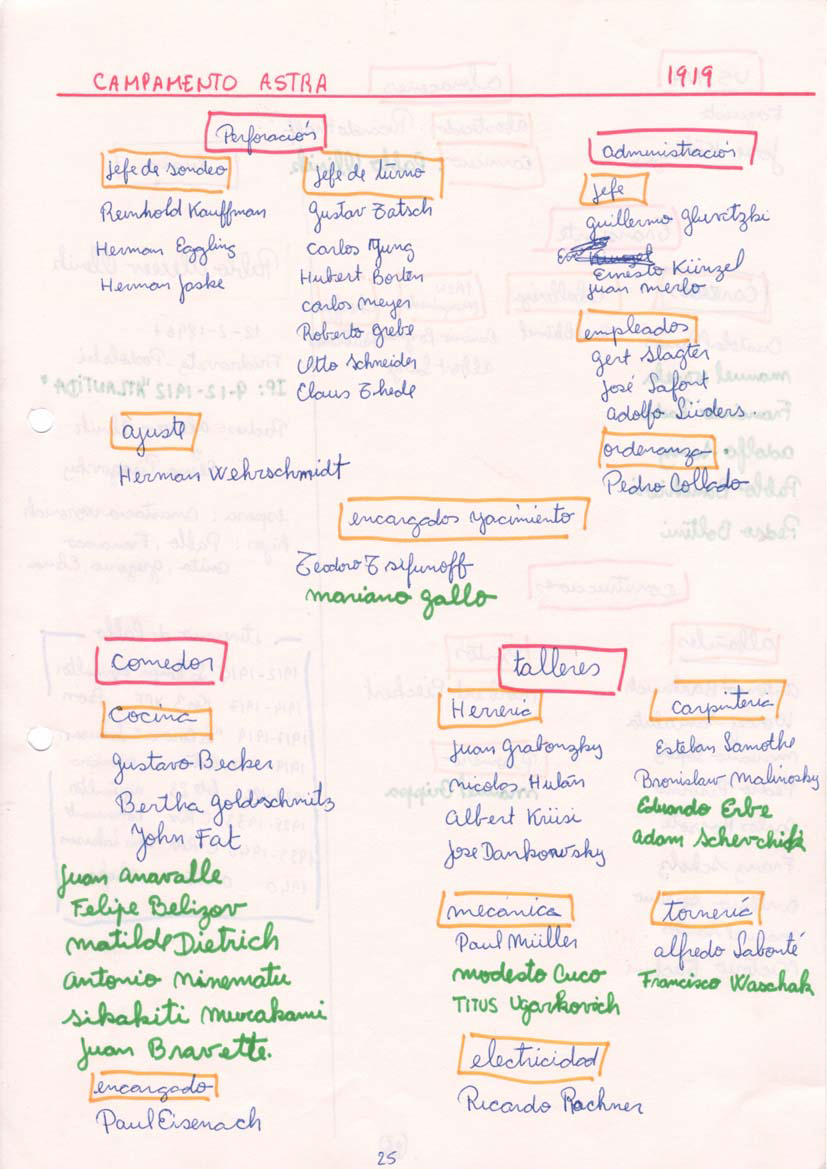 CAMPAMENTO ASTRA 1919
Perforación
jefe de sondeo
Reinhold Kauffman
Herman Eggling
Herman Jaske
jefe de turno
Gustav Tatsch
Carlos Jung
Hubert Borten
Carlos Meyer
Roberto Grebe
Otto Schneider
Claus Thede
administración
jefe
Guillermo Gluvitzki
Ernesto Künzel
Juan Merlo
empleados
Gert Slagter
José Safont
Adolfo Lüders.
ordenanza
Pedro Collado
ajuste
Herman Wehrschmidt
encargados yacimiento
Teodoro Trifunoff
Mariano Gallo
comedor
cocina
Gustavo Becker
Bertha Goldschmitz
John Fat
Juan Anavalle
Felipe Belizov
Matilde Dietrich
Antonio Minematu
Sikakiti Murakami
Juan Bravette.
encargado
Paul Eisenach
talleres
Herrería
Juan Grabonzky
Nicolas Hulán
Albert Krüsi
Jose Dankowsky
carpintería
Esteban Samothe
Bronislaw Malinosky
Eduardo Erbe
Adam
mecánica
Paul Müller
Modesto Cuco
TITUS Ugarkovich
tornería
Alfredo Labonté
Francisco Waschak
electricidad
Ricardo Rachner
25